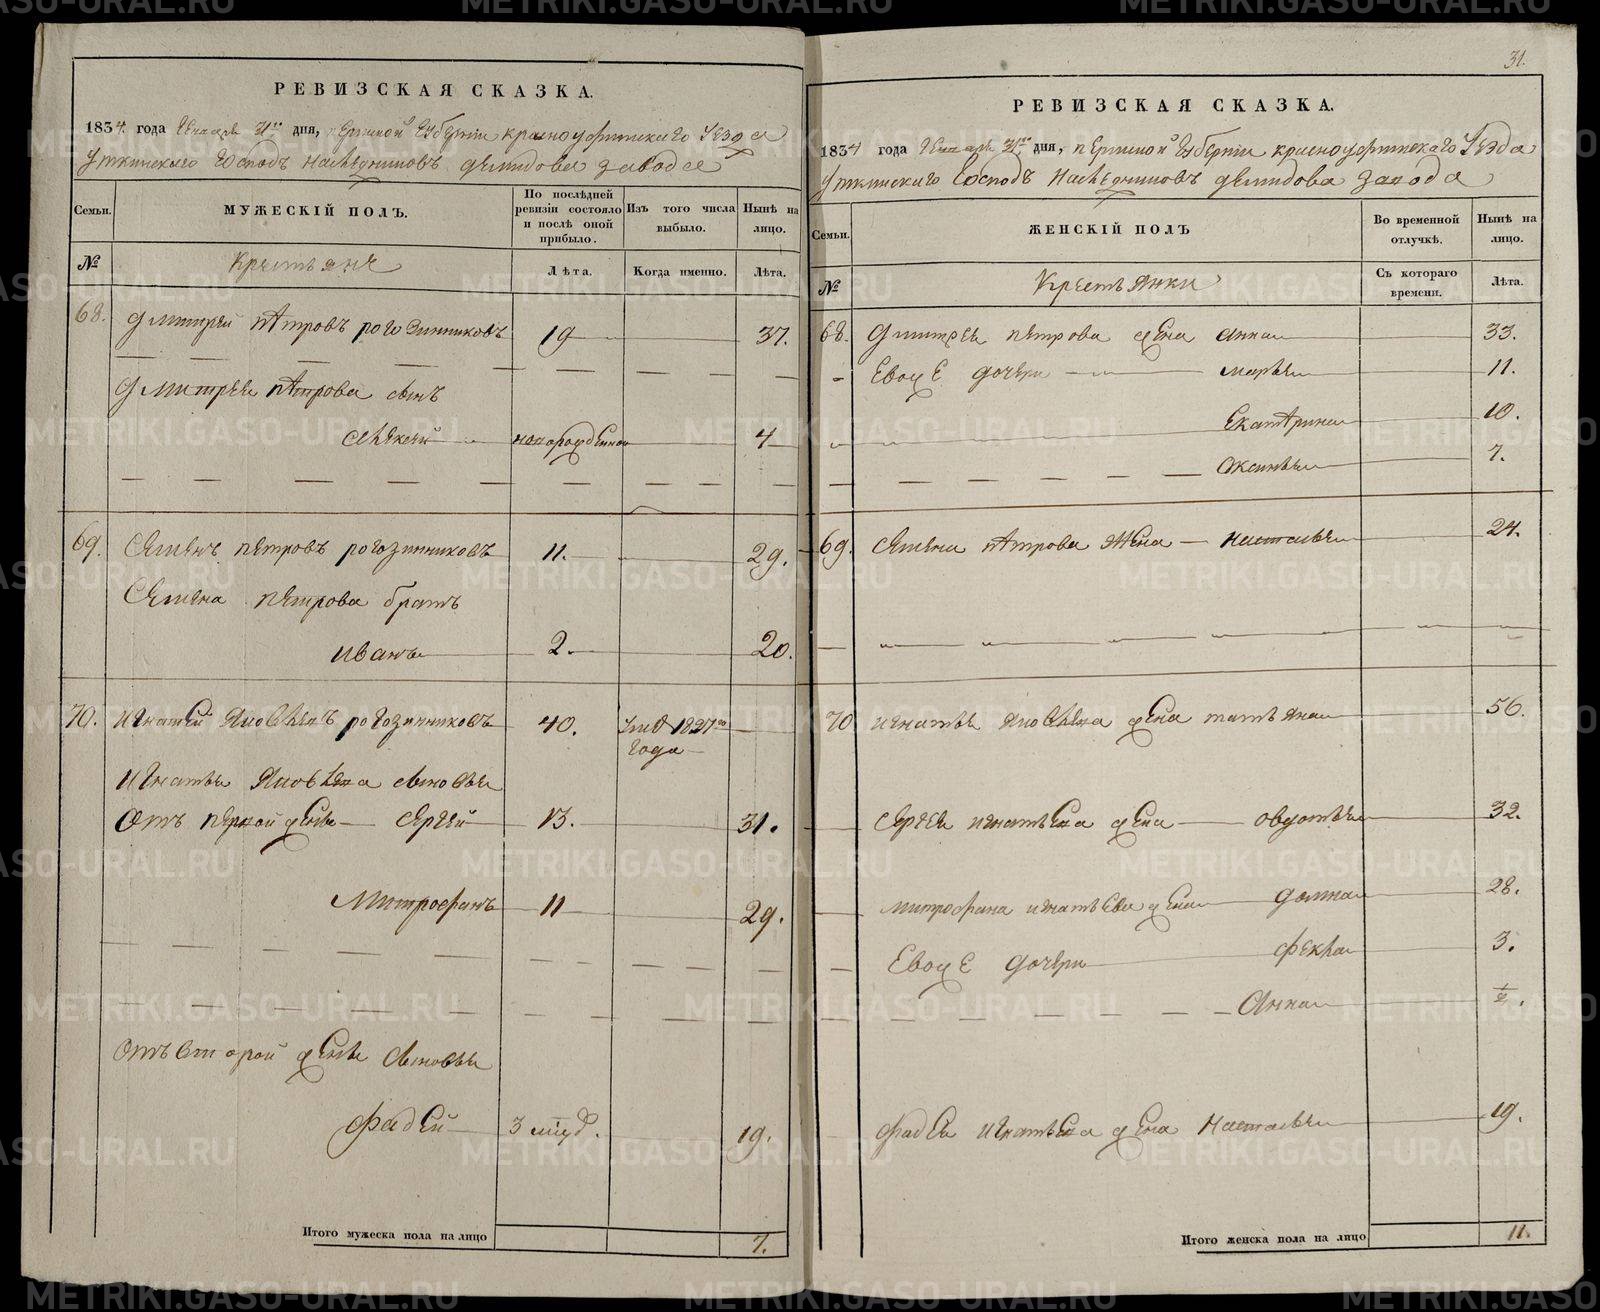 31.
РЕВИЗСКАЯ СКАЗКА.
1834 года Генваря 31го дня, Пермской Губернии Красноуфимскаго Уезда
Уткинскаго Господъ Наследниковъ Демидова завода
Семьи.
МУЖЕСКІЙ ПОЛЪ.
По послѣдней ревизіи состояло и послѣ оной прибыло.
Изъ того числа выбыло.
Нынѣ на лицо.
№
Крестьяне
Лѣта.
Когда именно.
Лѣта.
68. Дмитрей Петровъ Рогозинниковъ 19 37.
Дмитрея Петрова сынъ
Алексей новорожденной 4
69. Семенъ Петровъ Рогозинниковъ 11. 29.
Семена Петрова братъ
Иванъ 2. 20.
70. Игнатей Яковлевъ Рогозинниковъ 40. Умре 1827го
года
Игнатья Яковлева сыновья
Отъ первой жены Сергей 13. 31.
Митрофанъ 11 29.
Отъ второй жены сыновья
Фадей 3 мѣд. 19.
Итого мужеска пола на лицо 7.
РЕВИЗСКАЯ СКАЗКА.
1834 года Генваря 31го дня, Пермской Губернии Красноуфимскаго Уезда
Уткинскаго Господъ Наследниковъ Демидова завода
Семьи.
ЖЕНСКІЙ ПОЛЪ
Во временной отлучкѣ.
Нынѣ на лицо.
№
Крестьянки
Съ котораго времени.
Лѣта.
68. Дмитрея Петрова жена Анна 33.
Евоже дочери Марья 11.
Екатерина 10.
Оксинья 7.
69. Семена Петрова жена Наталья 24.
70 Игнатья Яковлева жена Татьяна 56.
Сергея Игнатьева жена Овдотья 32.
Митрофана Игнатьева жена Домна 28.
Евоже дочери Фекла 3.
Анна ½.
Фадея Игнатьева жена Наталья 19.
Итого женска пола на лицо 11.
METRIKI.GASO-URAL.RU